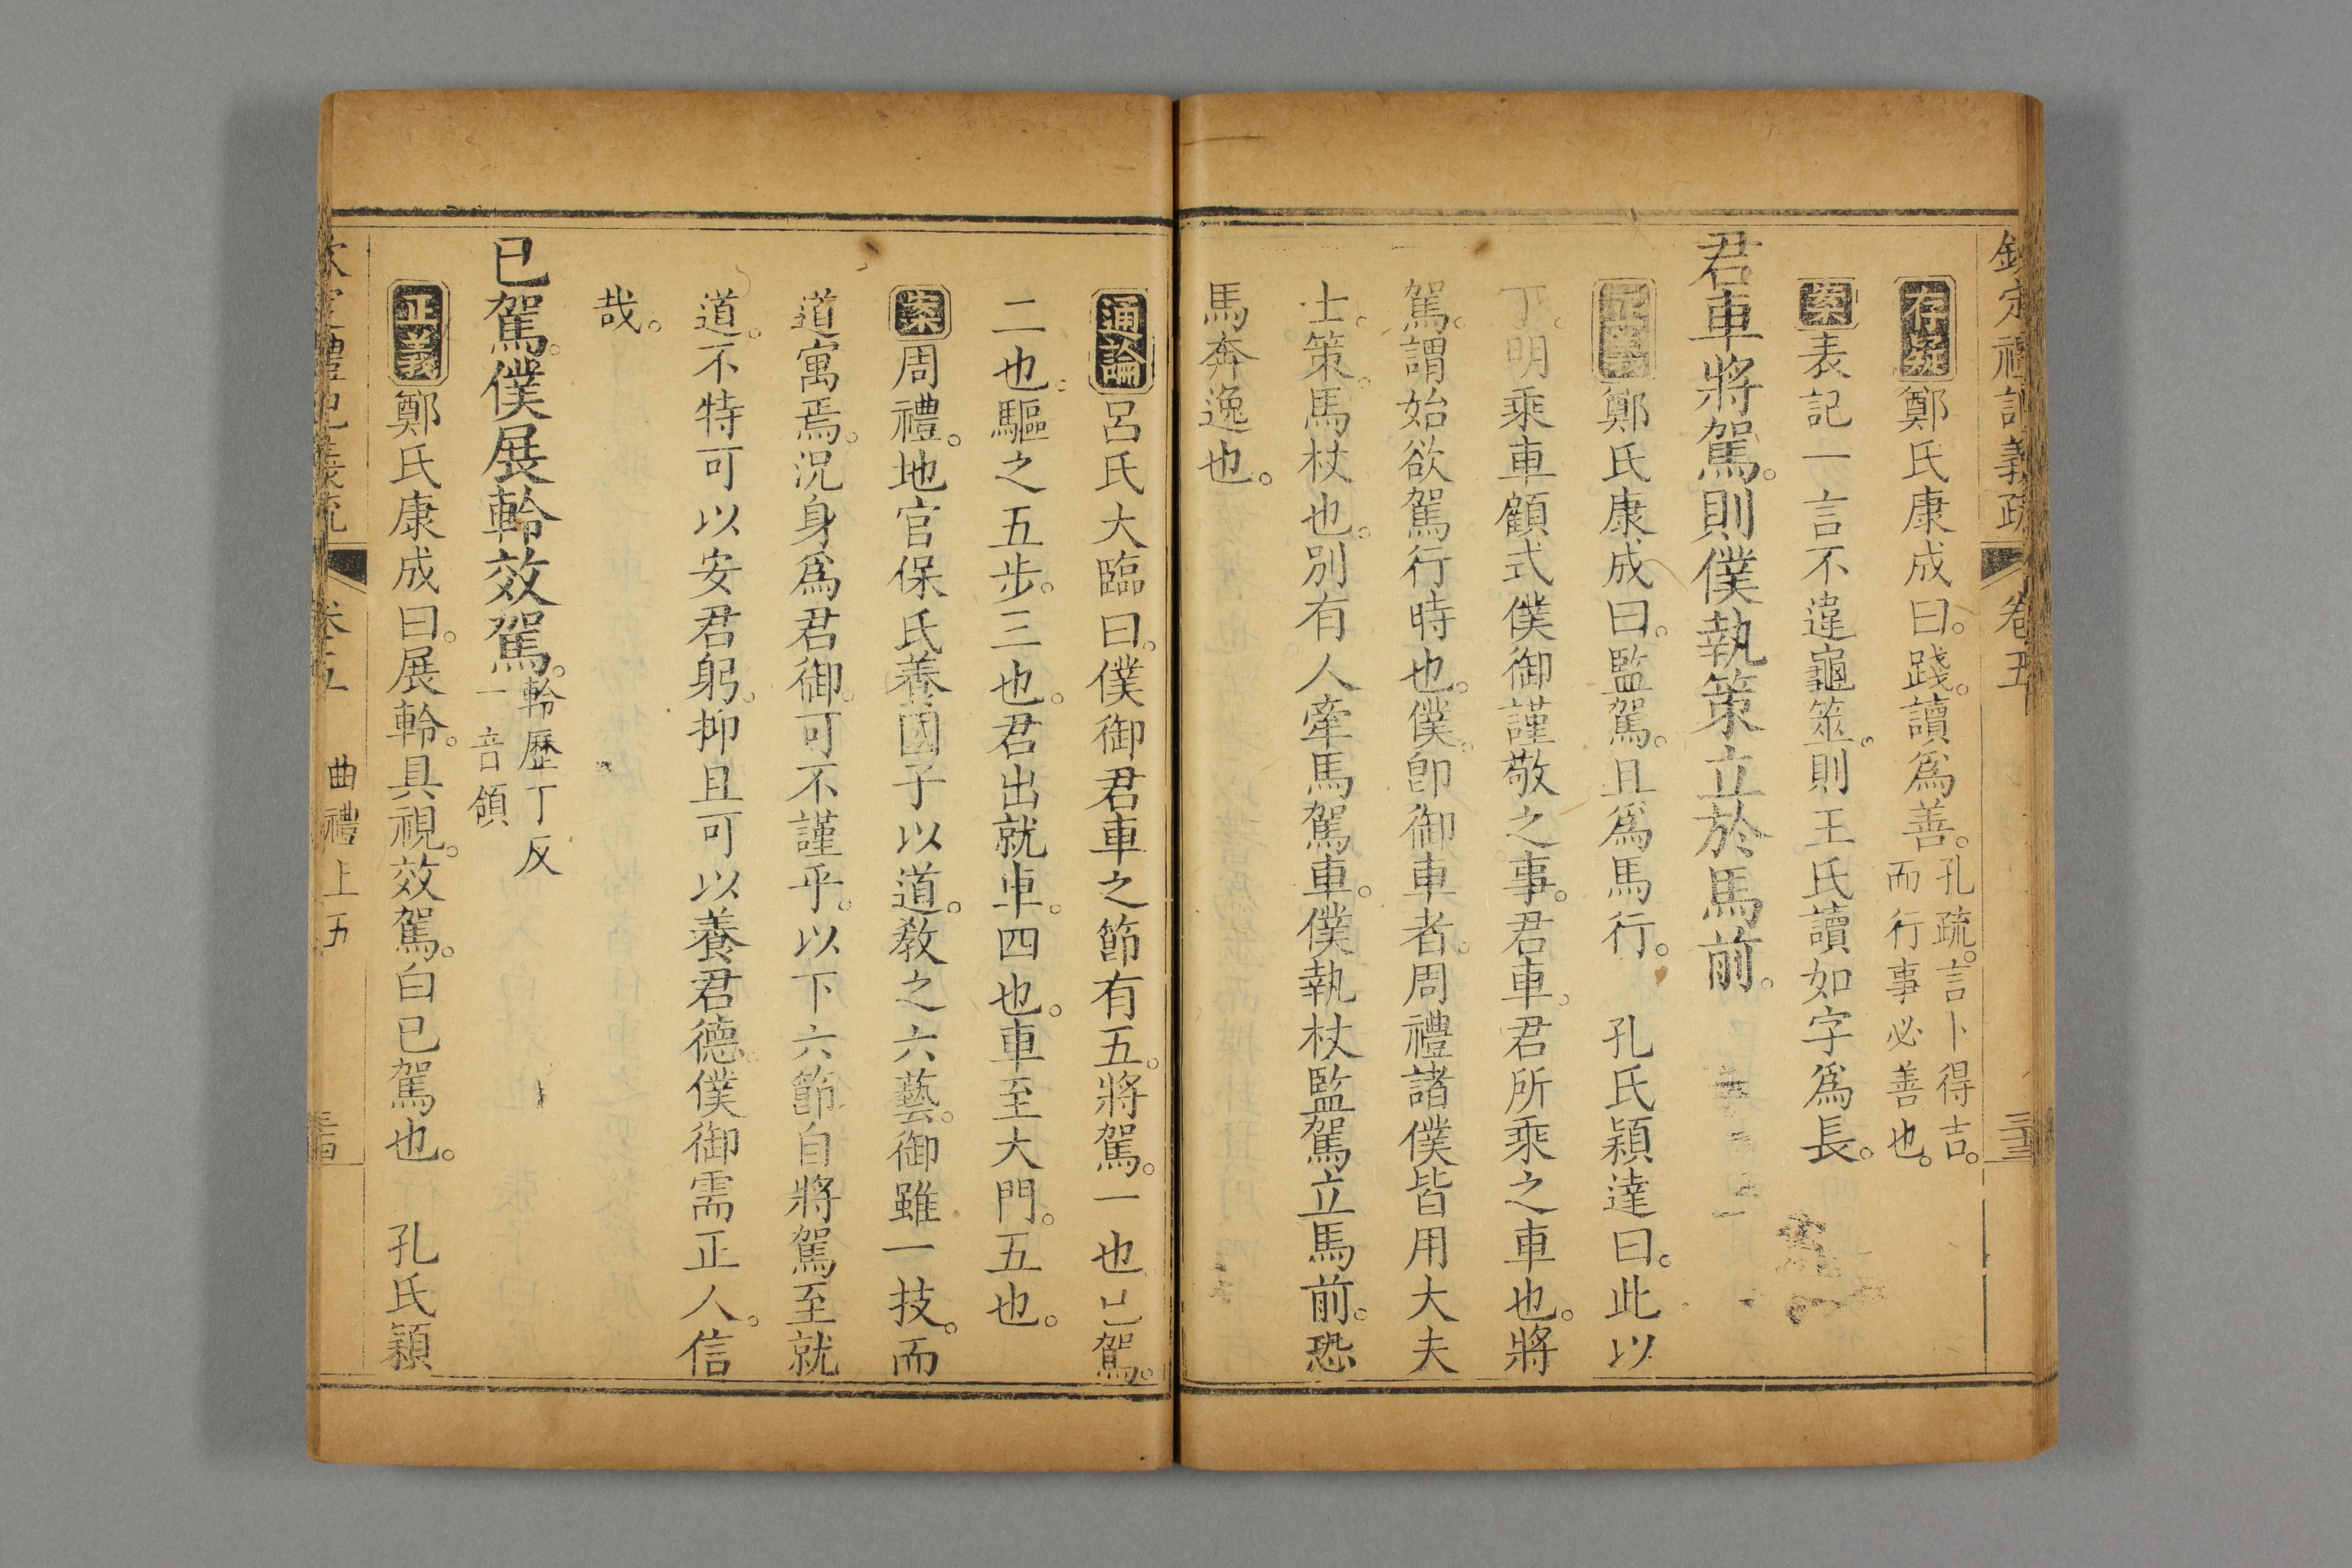 欽定禮記義疏 卷五
存疑鄭氏康成曰。踐。讀爲善。孔疏。言卜得吉。而行事必善也。
案表記一言不違龜筮。則王氏讀如字爲長。
君車將駕。則僕執策立於馬前。
正義鄭氏康成曰。監駕。且爲馬行。 孔氏穎達曰。此以
下。明乘車顧式僕御謹敬之事。君車。君所乘之車也。將
駕。謂始欲駕行時也。僕。卽御車者。周禮諸僕皆用大夫
士。策。馬杖也。別有人牽馬駕車。僕執杖監駕立馬前。恐
馬奔逸也。
通論呂氏大臨曰。僕御君車之節有五。將駕。一也已駕。
二也。驅之五步。三也。君出就車。四也。車至大門。五也。
案周禮。地官保氏養國子以道。敎之六藝。御雖一技。而
道寓焉。況身爲君御。可不謹乎。以下六節自將駕至就
道。不特可以安君躬。抑且可以養君德。僕御需正人。信
哉。
已駕。僕展軨效駕。軨歷丁反一音領
正義鄭氏康成曰。展軨。具視。效駕。白已駕也。 孔氏穎
欽定禮記義疏 卷五 曲禮上五